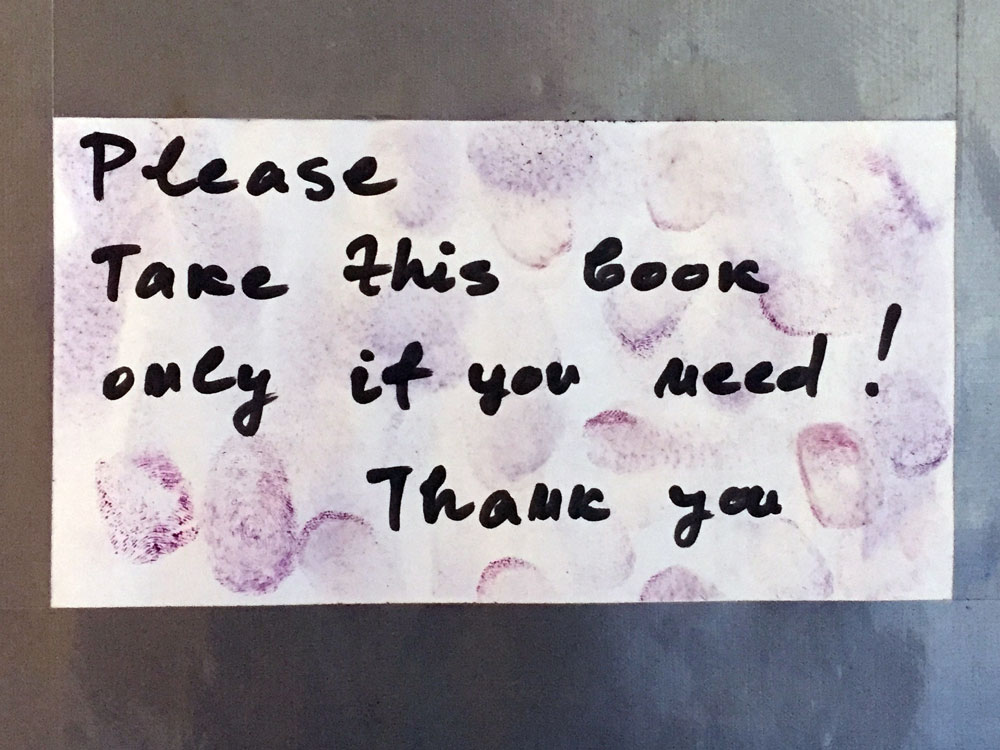 Please
Take this book
only if you need!
Thank you